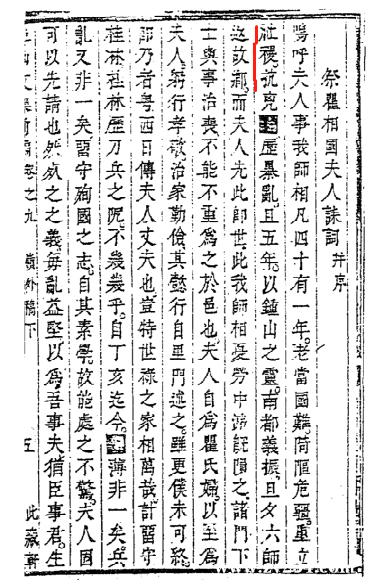 祭瞿相國夫人誄詞并序
嗚呼夫人事我師相凡四十有一年老當國難荷
危疆重立
社稷抗克
歷暴亂且五年以鐘山之靈南都義振旦夕六師
返故鄉而夫人先此即世此我師相憂勞中
諸門下
士與事治喪不能不重爲之於邑也夫人自爲瞿氏婦以至爲
夫人躬行孝敬治家勤儉其懿行自里門述之雖更僕未可終
即乃者粵西日傳夫人丈夫也豈特世祿之家相萬哉計留守
桂林桂林歷刀兵之阨不幾幾乎自丁亥迄今
薄非一矣兵
亂又非一矣留守殉國之志自其素學故能處之不驚夫人固
可以先請也然
之義每亂益堅以爲吾事夫猶臣事君生
卷之九
嶺外稿下
五
此藏軒